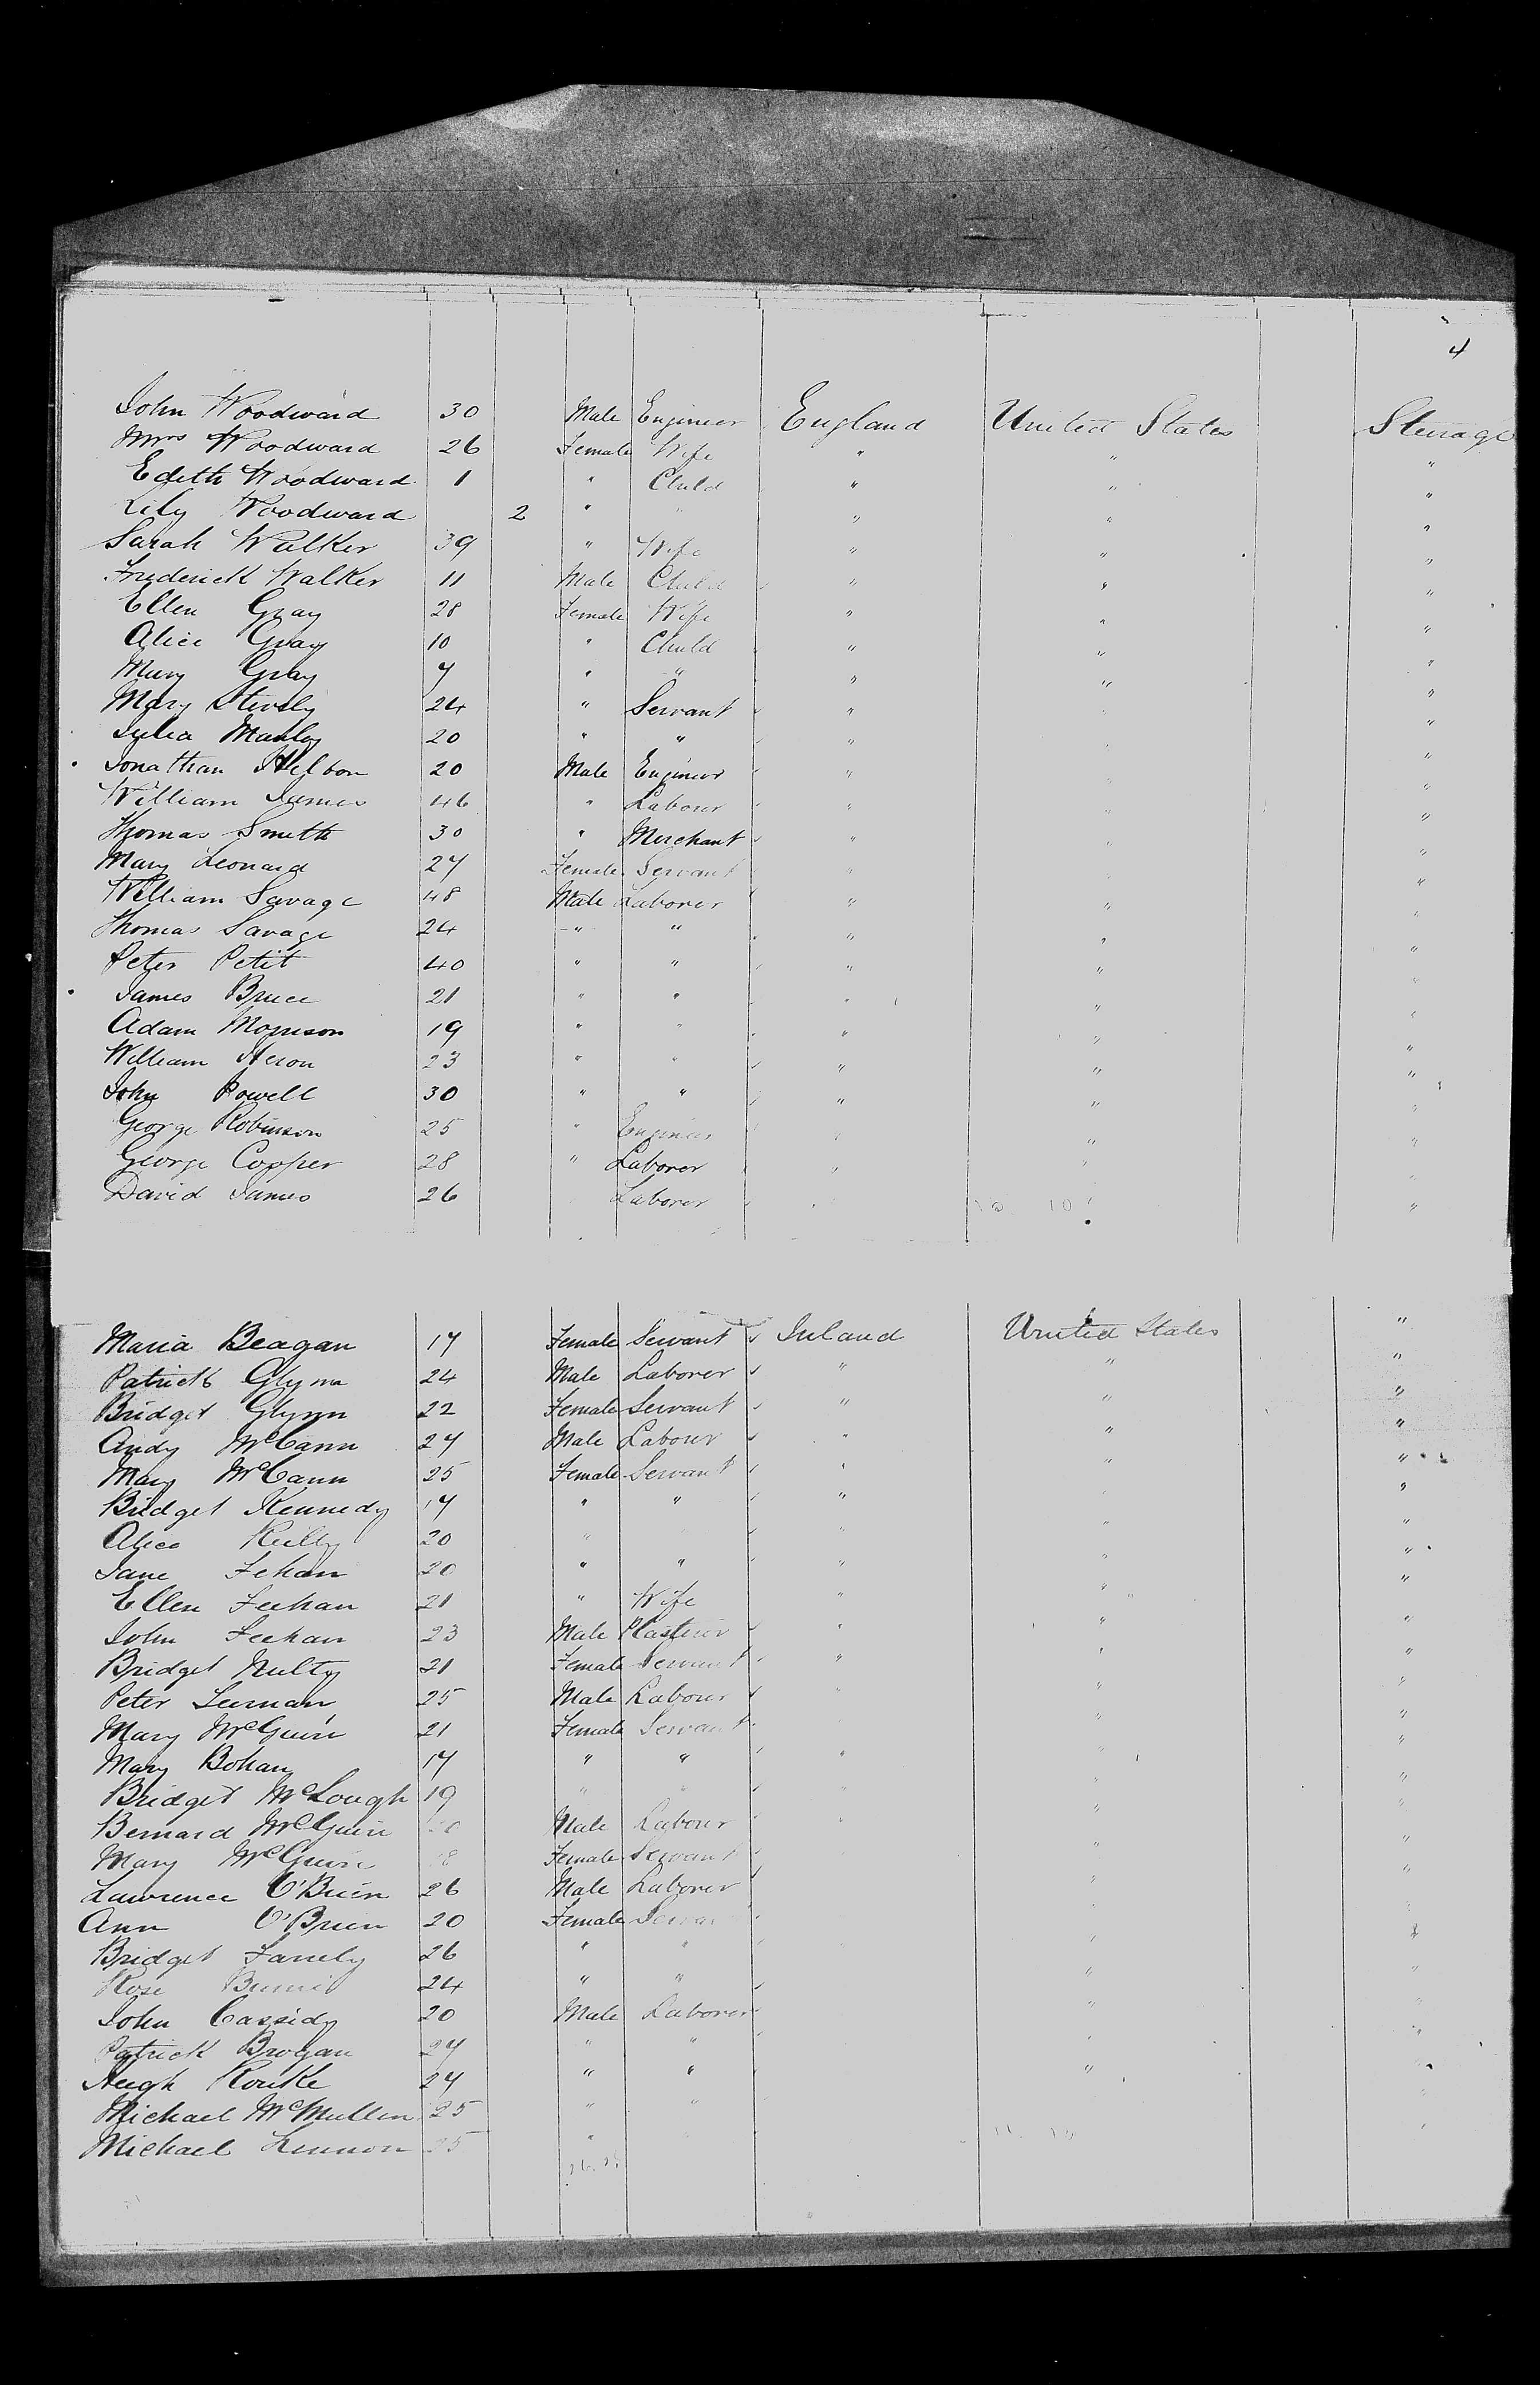 4
John Woodward 30 Male Engineer England United States Steerage
Mrs Woodward 26 Female Wife " " "
Edith Woodward 1 " Child " " "
Lily Woodward 2 " " " " "
Sarah Walker 39 " Wife " " "
Frederick Walker 11 Male Child " " "
Ellen Gray 28 Female Wife " " "
Alice Gray 10 " Child " " "
Mary Gray 7 " " " " "
Mary 24 " Servant " "
Julia Manley 20 " " " "
Jonathan 20 Male Engineer " "
William James 46 " Labourer " "
Thomas Smith 30 " Merchant " "
Mary Leonard 27 Female Servant " "
William Savage 48 Male Laborer " " "
Thomas Savage 24 " " " " "
Peter Petit 40 " " " " "
James Bruce 21 " " " " "
Adam Morrison 19 " " " " "
William Heron 23 " " " " "
John Powell 30 " " " " "
George Robinson 25 " Engineer " " "
George Cooper 28 " Laborer " " "
David James 26 Laborer "
Maria Reagan 17 Female Servant Ireland United States "
Patrick Glynn 24 Male Laborer " " "
Bridget Glynn 22 Female Servant " " "
Andy McCann 27 Male Labourer " " "
Mary McCann 25 Female Servant " " "
Bridget Kennedy 17 " " " " "
Alice Reilly 20 " " " "
Jane Fehan 20 " " " " "
Ellen Feehan 21 " Wife " " "
John Feehan 23 Male Plasterer " " "
Bridget Nulty 21 Female Servant " " "
Peter 25 Male Labourer " "
Mary McGuire 21 Female Servant " "
Mary Bohan 17 " " " " "
Bridget McLough 19 " " " " "
Bernard McGuire Male Labourer " "
Mary McGuire Female Servant " "
Lawrence O'Brien 26 Male Laborer " "
Ann O'Brien 20 Female Servant "
Bridget 26 " " " "
Rose 24 " " " "
John Cassidy 20 Male Laborer " "
Patrick Brogan 27 " " " "
Hugh Rourke 27 " " " "
Michael McMullen 25 " " "
Michael Lennon 25 " "